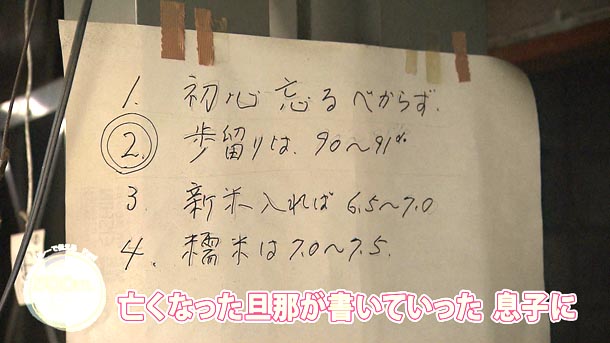 1. 初心忘るべからず.
2. 歩留りは. 90〜91%
3. 新米入れば 6.5〜7.0
4. 糯米は 7.0〜7.5.
亡くなった旦那が書いていった 息子に